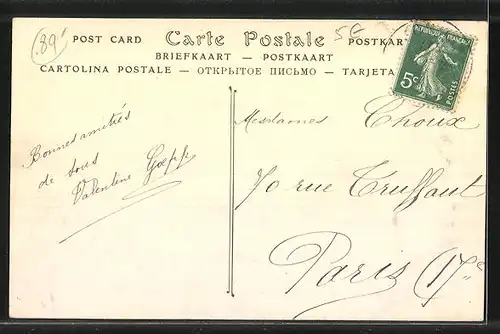 89
5€
POST CARD Carte Postale POSTKAR
BRIEFKAART — POSTKAART
CARTOLINA POSTALE — ОТКРЫТОЕ ПИСЬМО — TARJETA
REPUBLIQUE FRANÇAISE
5c
POSTES
Bonnes amitiés
de tous
Valentine Goepp
Mesdames Choux
70 rue Truffaut
Paris (17e